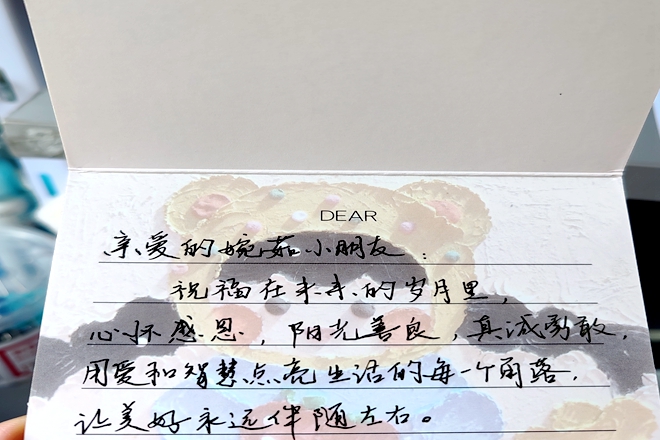 DEAR
亲爱的婉茹小朋友：
祝福在未来的岁月里，
心怀感恩，阳光善良，真诚勇敢，
用爱和智慧点亮生活的每一个角落，
让美好永远伴随左右。